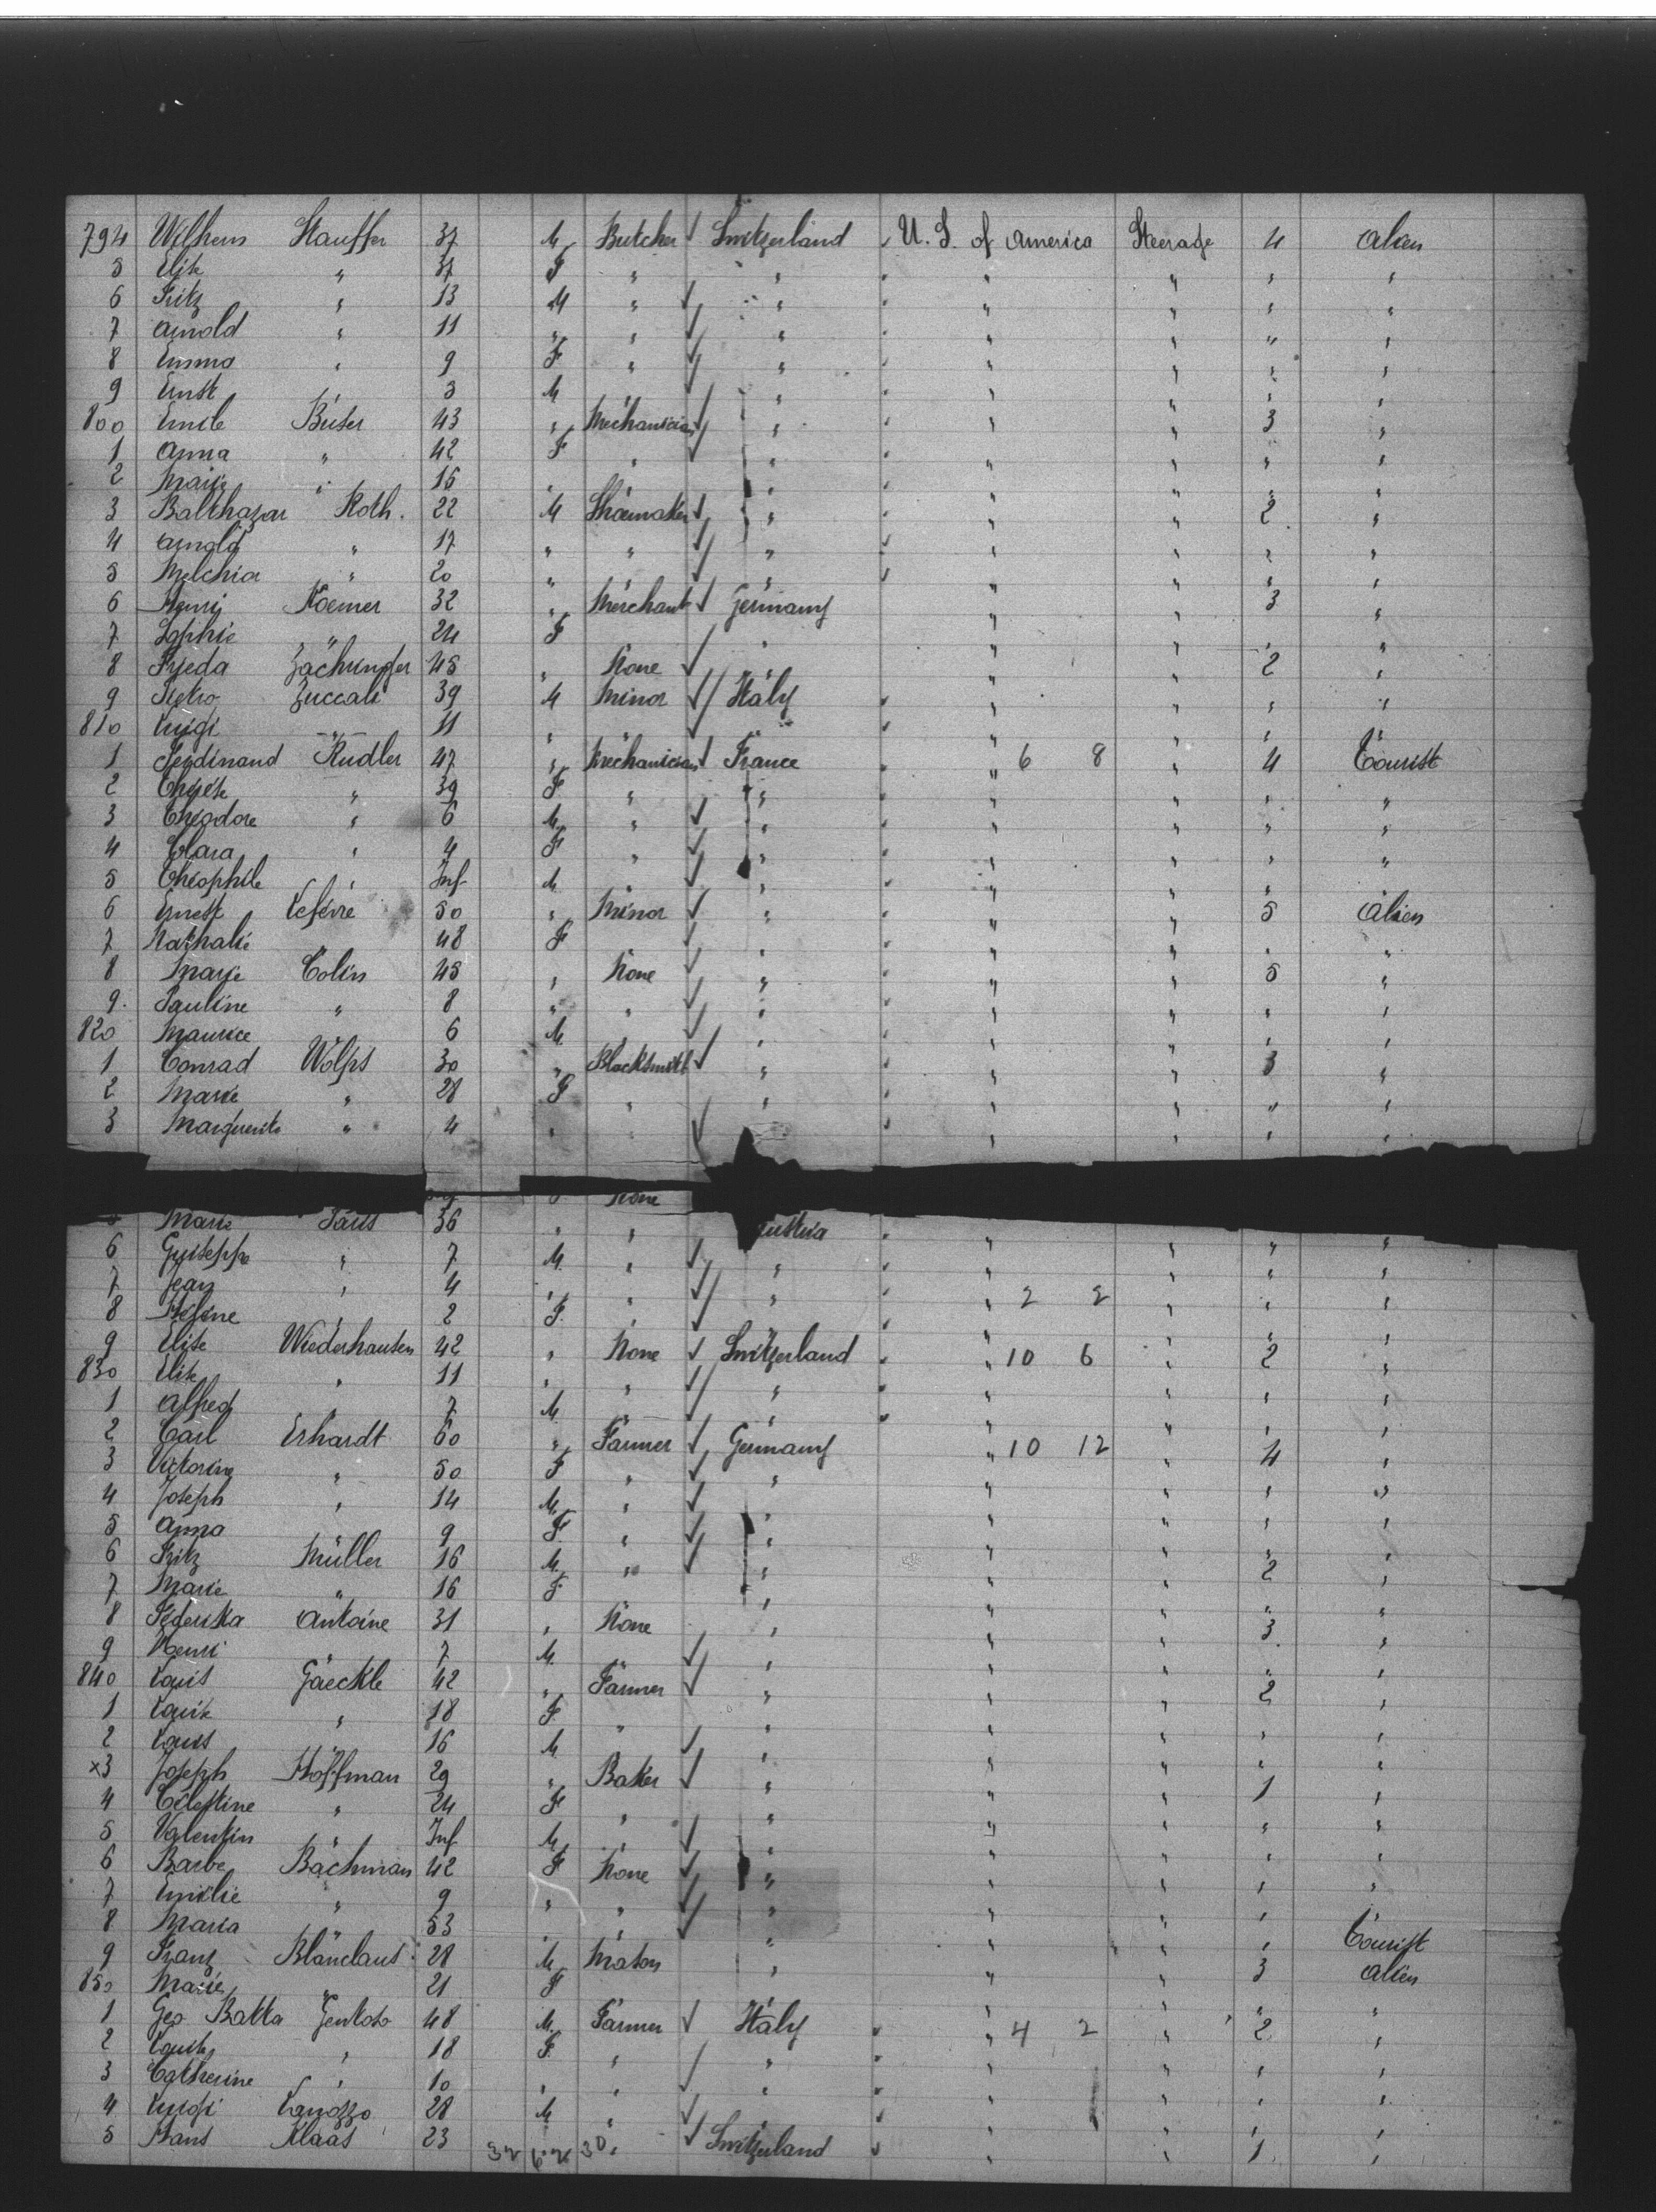 794 Wilhem Stauffer 37 M Butcher ✓ Switzerland U. S. of America Steerage 4 Alien
5 Elise " 37 F " " " " " "
6 Fritz " 13 M " ✓ " " " " "
7 Arnold " 11 " " ✓ " " " " "
8 Emma " 9 F " ✓ " " " " "
9 Ernst " 3 M ✓ " " " " "
800 Emile Buser 43 " Mechanician ✓ " " " 3 "
1 Anna " 42 F " ✓ " " " " "
2 Marie " 16 " " " " " "
3 Balthazar Roth. 22 M Shoemaker ✓ " " " 2 "
4 Arnold " 17 " " ✓ " " " " "
5 Melchior " 20 " " ✓ " " " " "
6 Henri Koemer 32 " Merchant ✓ Germany " " 3 "
7 Sophie " 24 F " " " " "
8 Frieda Zachringer 45 " None ✓ " " " 2 "
9 Pietro Zuccali 39 M Minor ✓ Italy " " " "
810 Luigi " 11 " " ✓ " " " " "
1 Ferdinand Rudler 47 " Mechanician ✓ France " 6 8 " 4 Tourist
2 " 39 F " " " " " "
3 Théodore " 6 M " ✓ " " " " "
4 Clara " 4 F " ✓ " " " " "
5 Théophile " Inf M " ✓ " " " " "
6 Ernest Lefèvre 50 " Minor ✓ " " " 5 Alien
7 Nathalie " 48 F ✓ " " " " "
8 Marie Colin 45 " None ✓ " " " 5 "
9 Pauline " 8 " " ✓ " " " " "
820 Maurice 6 M " ✓ " " " " "
1 Conrad Wolfs 30 " Blacksmith ✓ " " " 3 "
2 Marie " 28 F " " " " " "
3 Marguerite " 4 " ✓ " " " "
None
Marie 36 " " " " " "
6 Guiseppe " 7 M " ✓ " " " " "
7 Jean " 4 " " ✓ " " 2 2 " " "
8 Hélène " 2 F " " " " "
9 Elise Wiederhausen 42 " None ✓ Switzerland " 10 6 " 2 "
830 Elise " 11 " " ✓ " " " " "
1 Alfred " 7 M " " " " "
2 Carl Erhardt 60 " Farmer ✓ Germany " 10 12 " 4 "
3 Victorine " 50 F " ✓ " " " " "
4 Joseph " 14 M " ✓ " " " "
5 Anna 9 F " ✓ " " " " "
6 Fritz Müller 16 M " ✓ " " " 2 "
7 Marie " 16 F " " " " "
8 Antoine 31 " None " " " 3 "
9 Henri " 7 M ✓ " " " " "
840 Louis Gaeckle 42 " Farmer ✓ " " " 2 "
1 Louise " 18 F " " " " " "
2 Louis " 16 M ✓ " " " " "
x3 Joseph Hoffman 29 " Baker ✓ " " " 1 "
4 Célestine " 24 F " " " " " "
5 Valentin " Inf M " ✓ " " " " "
6 Barbe Bachman 42 F None ✓ " " " " "
7 Emélie " 9 " " ✓ " " " " "
8 Maria 53 " ✓ " " " " Tourist
9 Franz Blanclaus 28 M Mason " " " 3 Alien
850 Marie " 21 F " " " " "
1 Geo Batta 48 M Farmer ✓ Italy " 4 2 " 2 "
2 Louise " 18 F " ✓ " " " " "
3 Catherine " 10 " " " " " " "
4 Luigi 28 M " ✓ " " " "
5 Hans Klaas 23 " ✓ Switzerland " " 1 "